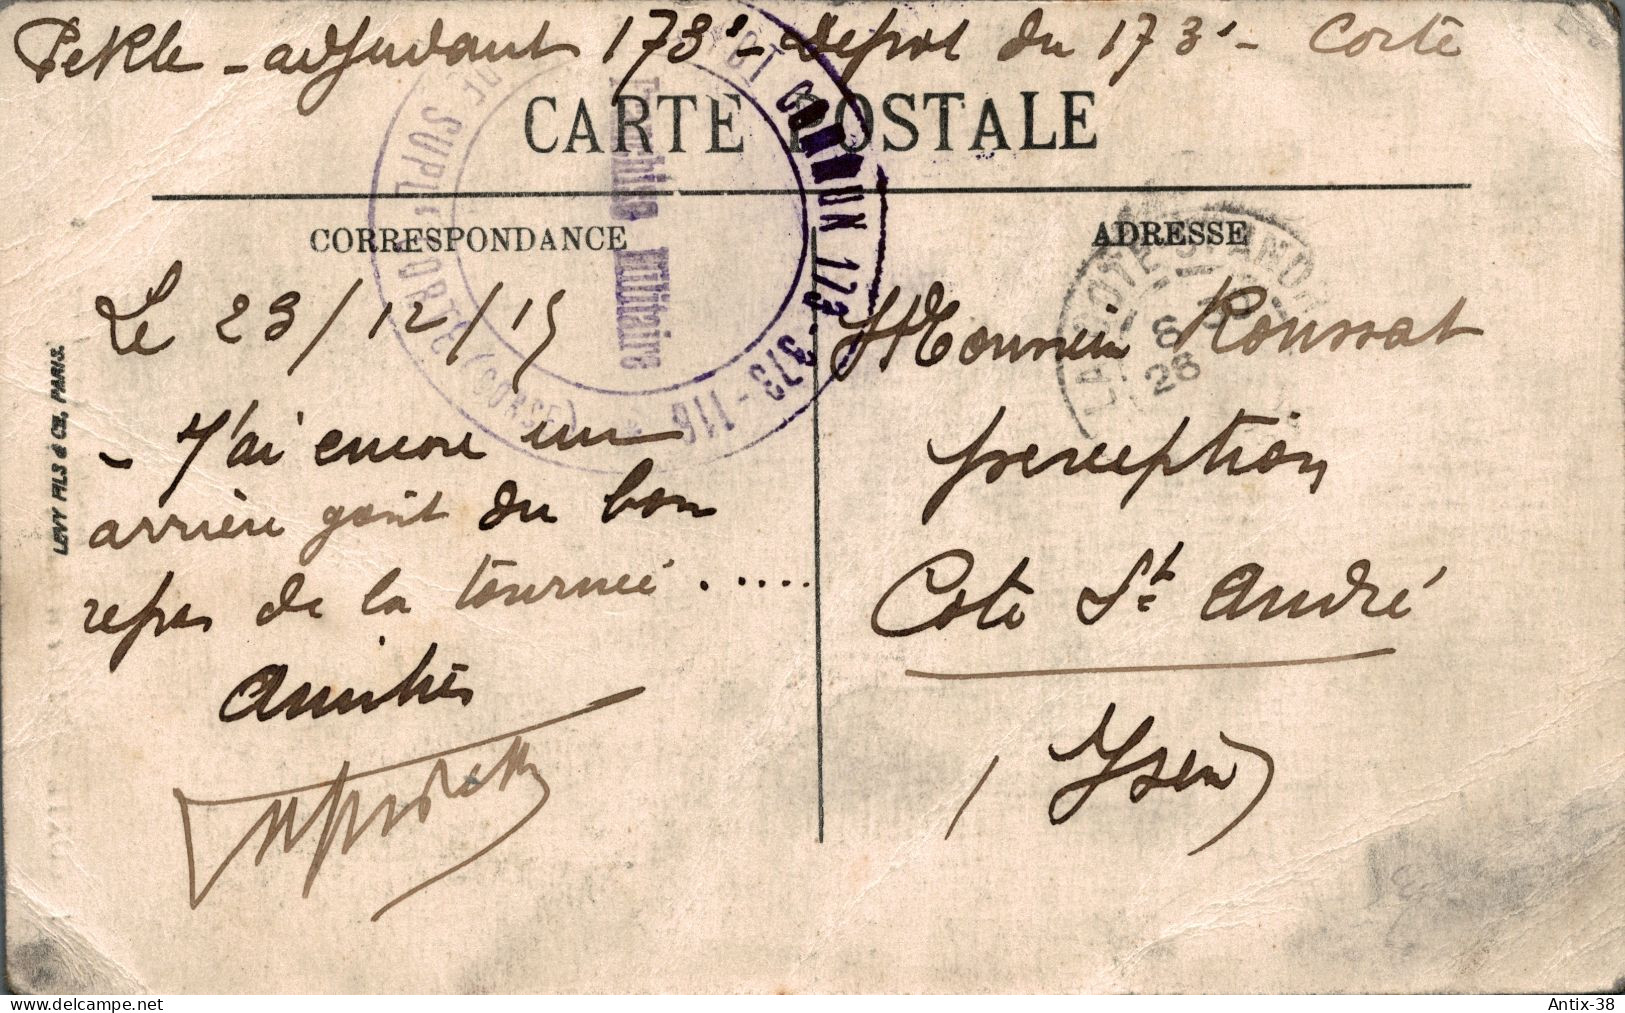 Pekle - adjudant 173e - Depot du 173e - Corte
CARTE POSTALE
CORRESPONDANCE
ADRESSE
Le 23/12/15
- J'ai encore un
arrière goût du bon
repas de la tournée .....
Amitiés
Monsieur Roussat
perception
Cote St André
(Isère)
LEVY FILS & Cie, PARIS.
Franchise Militaire
COMMUN 173 - 373 - 116
CORTE (CORSE)
LA COTE ST ANDRÉ
28
Antix-38